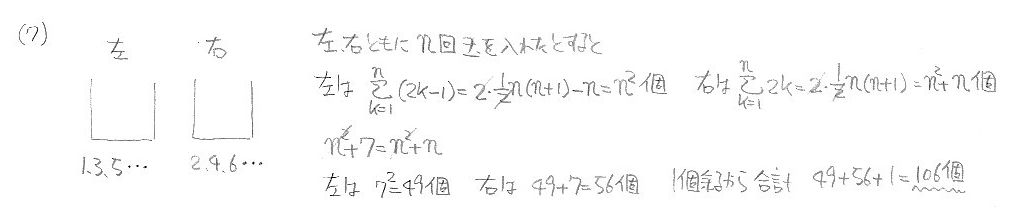 (7)
左 右
1.3.5… 2.4.6…
左、右ともにn回玉を入れたとすると
左は \sum_{k=1}^{n} (2k-1)=2・\frac{1}{2}n(n+1)-n=n²個 右は \sum_{k=1}^{n} 2k=2・\frac{1}{2}n(n+1)=n²+n個
n²+7=n²+n
左は 7²=49個 右は 49+7=56個 1個余るから 合計 49+56+1=106個